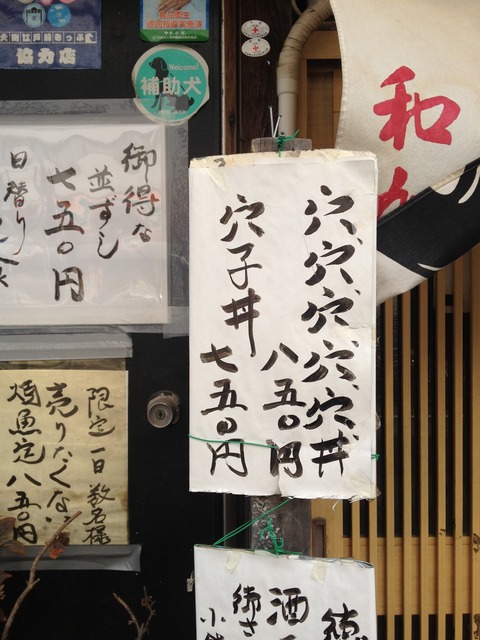 協力店
Welcome!
補助犬
和
御得な
並ずし
七五〇円
日替り
穴、穴、穴、穴、穴丼
八五〇円
穴子丼
七五〇円
限定一日数名様
売りたくない
焼魚定八五〇円
酒